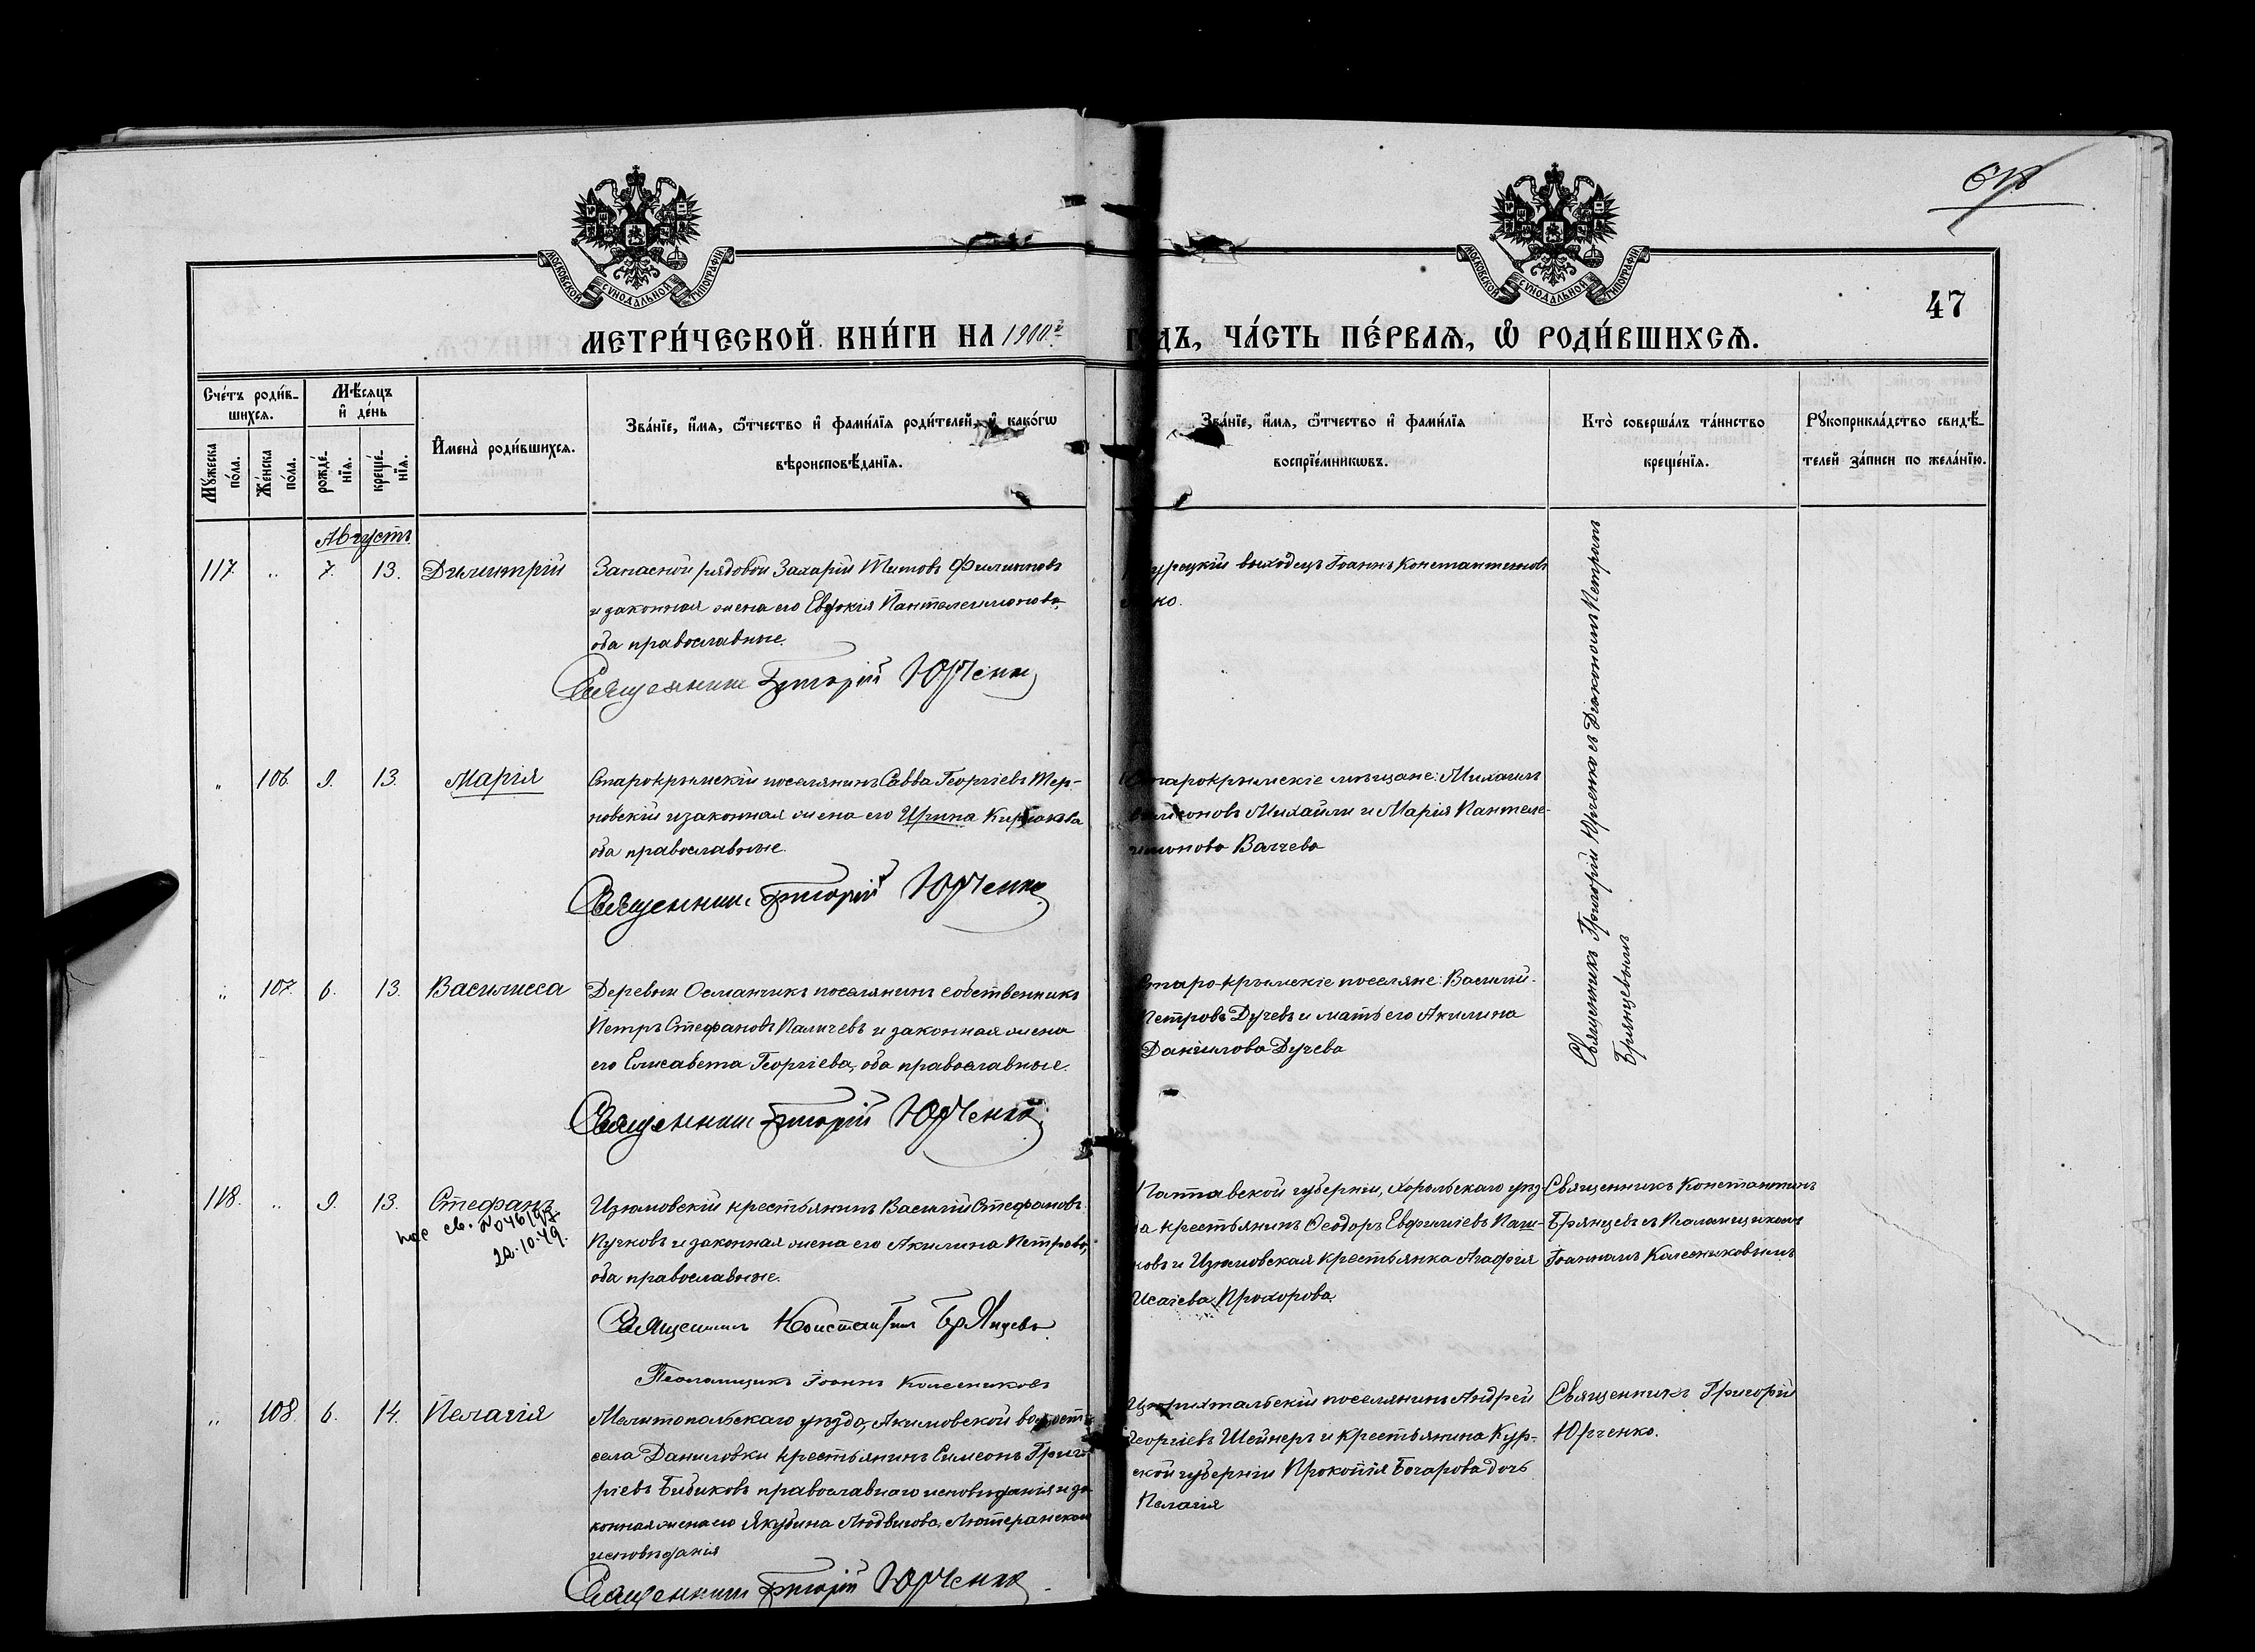 МОСКОВСКОЙ СѴНОДАЛЬНОЙ ТИПОГРАФІИ
МОСКОВСКОЙ СѴНОДАЛЬНОЙ ТИПОГРАФІИ
47
МЕТРИ́ЧЕСКОЙ КНИ́ГИ НА 1900й
ГОДЪ, ЧА́СТЬ ПЕ́РВАѦ, Ѡ҆ РОДИ́ВШИХСѦ.
Сче́тъ роди́в-
шихсѧ.
Мѣ́сѧцъ
и҆ де́нь
Мꙋ́жеска
по́ла.
Же́нска
по́ла.
рожде́-
нїѧ.
креще́-
нїѧ.
И҆мена̀ роди́вшихсѧ.
Зва́нїе, и҆́мѧ, ѻ҆́тчество и҆ фами́лїѧ роди́телей, и҆ како́гѡ
вѣроисповѣ́данїѧ.
Зва́нїе, и҆́мѧ, ѻ҆́тчество и҆ фами́лїѧ
воспрїе́мникѡвъ.
Кто̀ соверша́лъ та́инство
креще́нїѧ.
Рꙋкоприкла́дство свидѣ́-
телей за́писи по жела́нїю.
Августъ
117. „ 7. 13. Димитрій
Запасной рядовой Захарій Титовъ Филиповъ
и законная жена его Евдокія Пантелеимонова,
оба православные.
Священникъ Григорій Юрченко
урецкій выходецъ Іоаннъ Константиновъ
но.
Священникъ Григорій Юрченко съ Діакономъ Петромъ
Брянцевымъ
„ 106. 9. 13. Марія
Старокрымскій поселянинъ Савва Георгіевъ Тер-
новскій и законная жена его Ирина Кирьякова
оба православные.
Священникъ Григорій Юрченко
Старокрымскіе мѣщане: Михаилъ
Михайли и Марія Пантеле-
имонова Валчева
„ 107. 6. 13. Василисса
Деревни Османчикъ поселянинъ собственникъ
Петръ Стефановъ Паличевъ и законная жена
его Елисавета Георгіева, оба православные.
Священникъ Григорій Юрченко
Старокрымскіе поселяне: Василій
Петровъ Дучевъ и мать его Акилина
Даніилова Дучева
118. „ 9. 13. Стефанъ
св. N046197
22.10.49.
Изюмовскій крестьянинъ Василій Стефановъ
Пучковъ и законная жена его Акилина Петрова,
оба православные.
Священникъ Константинъ Брянцевъ
Псаломщикъ Іоаннъ Колесниковъ
Полтавской губерніи, Хорольскаго уѣз-
да крестьянинъ Ѳеодоръ Евфиміевъ Паш-
ковъ и Изюмовская крестьянка Агафія
Исаіева Прохорова.
Священникъ Константинъ
Брянцевъ съ Псаломщикомъ
Іоанномъ Колесниковымъ
„ 108. 6. 14. Пелагія
Мелитопольскаго уѣзда, Акимовской волости
села Даниловки крестьянинъ Симеонъ Григо-
ріевъ Бибиковъ православнаго исповѣданія и за-
конная жена его Якубина Людвигова, Лютеранскаго
исповѣданія
Священникъ Григорій Юрченко
Цюрихтальскій поселянинъ Андрей
Георгіевъ Шейнеръ и крестьянина Кур-
ской губерніи Прокопія Бочарова дочь
Пелагія
Священникъ Григорій
Юрченко.